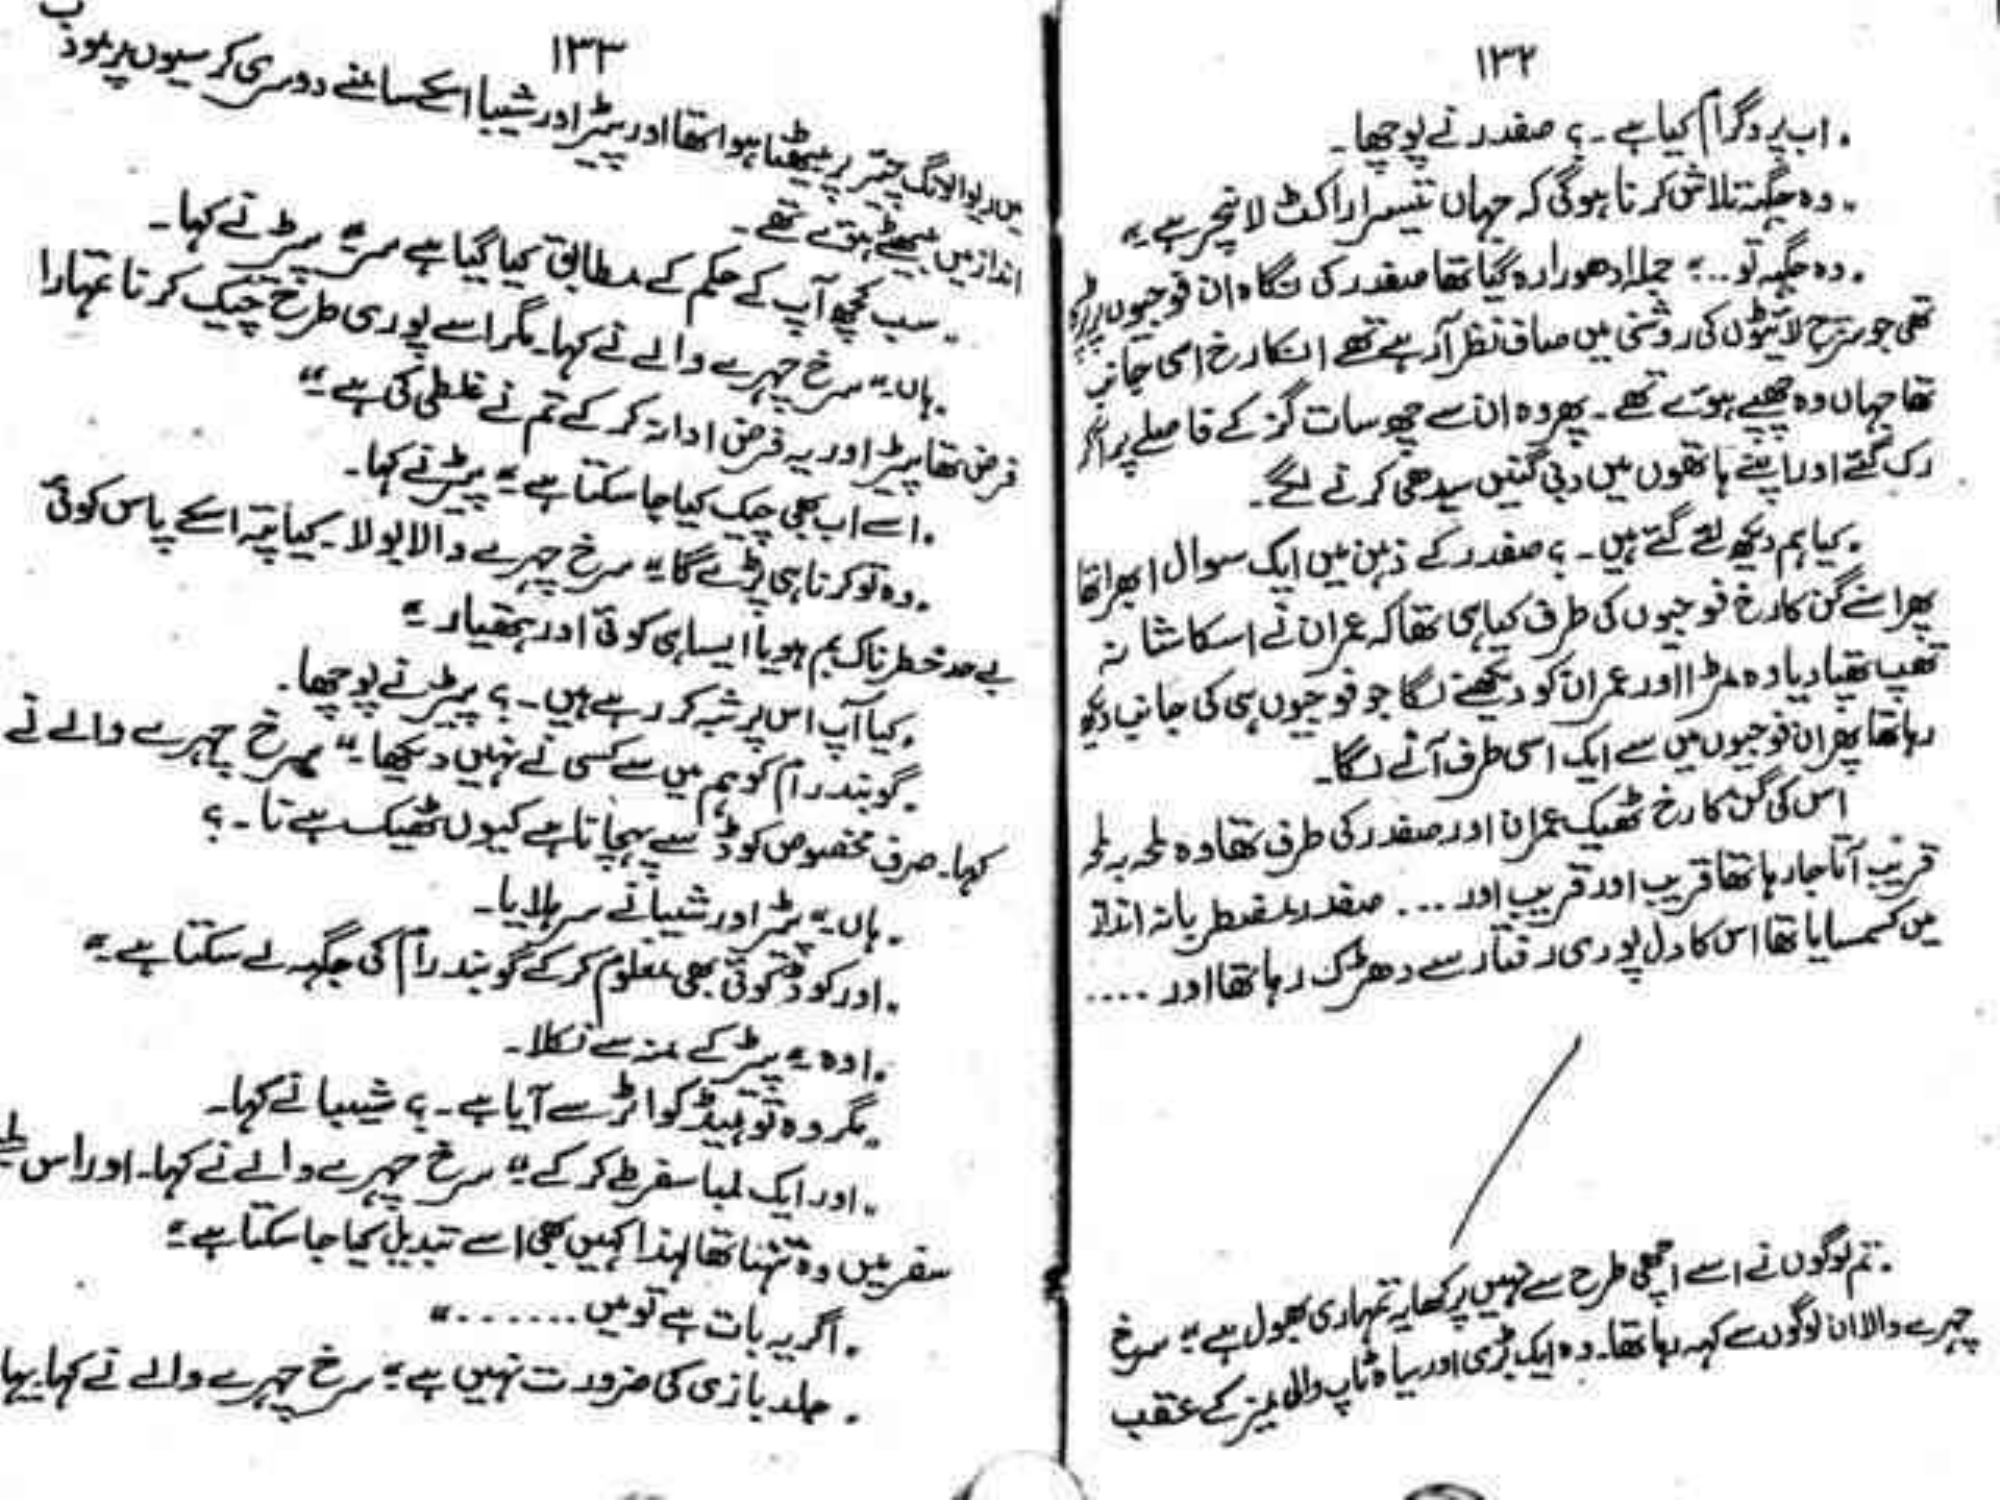 ۱۳۲
"اب پروگرام کیا ہے۔؟ صفدر نے پوچھا۔
"وہ جگہ تلاش کرنا ہوگی کہ جہاں تیسرا راکٹ لانچر ہے۔"
"وہ جگہ تو...." جملہ ادھورا رہ گیا تھا صفدر کی نگاہ ان فوجیوں پر پڑی
تھی جو سرخ لائیٹوں کی روشنی میں صاف نظر آرہے تھے انکا رخ اسی جانب
تھا جہاں وہ چھپے ہوئے تھے۔ پھر وہ ان سے چھ سات گز کے فاصلے پر آکر
رک گئے اور اپنے ہاتھوں میں دبی گنیں سیدھی کرنے لگے۔
"کیا ہم دیکھ لئے گئے ہیں۔؟ صفدر کے ذہن میں ایک سوال ابھرا تھا
پھر اسنے گن کا رخ فوجیوں کی طرف کیا ہی تھا کہ عمران نے اسکا شانہ
تھپ تھپا دیا وہ مڑا اور عمران کو دیکھنے لگا جو فوجیوں ہی کی جانب دیکھ
رہا تھا پھر ان فوجیوں میں سے ایک اسی طرف آنے لگا۔
اس کی گن کا رخ ٹھیک عمران اور صفدر کی طرف تھا وہ لمحہ بہ لمحہ
قریب آتا جا رہا تھا قریب اور قریب اور .... صفدر مضطربانہ انداز
میں کسمسایا تھا اس کا دل پوری رفتار سے دھڑک رہا تھا اور ....
"تم لوگوں نے اسے اچھی طرح سے نہیں پرکھا یہ تمہاری بھول ہے" سرخ
چہرے والا ان لوگوں سے کہہ رہا تھا۔ وہ ایک بڑی اور سیاہ ٹاپ والی میز کے عقب
۱۳۳
میں ریوالونگ چئیر پر بیٹھا ہوا تھا اور پیٹر اور شیبا اسکے سامنے دوسری کرسیوں پر مودب
انداز میں بیٹھے ہوئے تھے۔
"سب کچھ آپ کے حکم کے مطابق کیا گیا ہے سر" پیٹر نے کہا۔
"ہاں۔" سرخ چہرے والے نے کہا۔ مگر اسے پوری طرح چیک کرنا تمہارا
فرض تھا پیٹر اور یہ فرض ادا نہ کرکے تم نے غلطی کی ہے۔"
"اسے اب بھی چیک کیا جا سکتا ہے" پیٹر نے کہا۔
"وہ تو کرنا ہی پڑے گا" سرخ چہرے والا بولا۔ کیا پتہ اسکے پاس کوئی
بے حد خطرناک بم ہو یا ایسا ہی کوئی اور ہتھیار۔"
"کیا آپ اس پر شبہ کر رہے ہیں۔؟ پیٹر نے پوچھا۔
"گوبند رام کو ہم میں سے کسی نے نہیں دیکھا۔" سرخ چہرے والے نے
کہا۔ صرف مخصوص کوڈ سے پہچانا ہے کیوں ٹھیک ہے نا۔؟
"ہاں" پیٹر اور شیبا نے سر ہلایا۔
"اور کوڈ کوئی بھی معلوم کرکے گوبند رام کی جگہ لے سکتا ہے۔"
"اوہ" پیٹر کے منہ سے نکلا۔
"مگر وہ تو ہیڈ کواٹر سے آیا ہے۔؟ شیبا نے کہا۔
"اور ایک لمبا سفر طے کرکے" سرخ چہرے والے نے کہا۔ اور اس لمبے
سفر میں وہ تنہا تھا لہذا کہیں بھی اسے تبدیل کیا جا سکتا ہے۔"
"اگر یہ بات ہے تو میں ......."
"جلد بازی کی ضرورت نہیں ہے" سرخ چہرے والے نے کہا یہاں